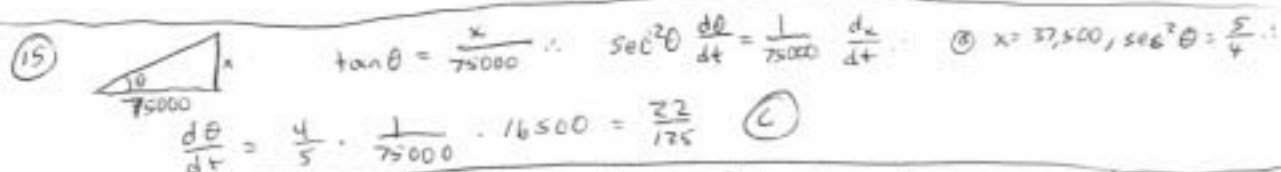 15 tan θ = x/75000 ∴ sec²θ dθ/dt = 1/75000 dx/dt . @ x = 37,500, sec²θ = 5/4 ∴
θ x
75000
dθ/dt = 4/5 · 1/75000 · 16500 = 22/125 C